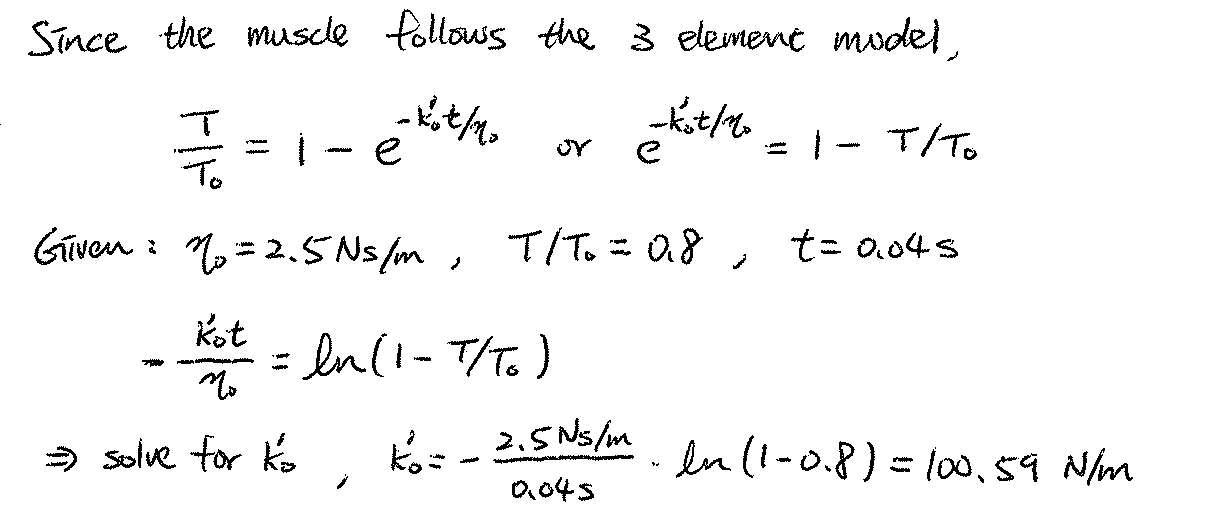 Since the muscle follows the 3 element model,
T/T₀ = 1 - e^(-k₀′t/η₀) or e^(-k₀′t/η₀) = 1 - T/T₀
Given: η₀ = 2.5 Ns/m, T/T₀ = 0.8, t = 0.04 s
- k₀′t/η₀ = ln(1 - T/T₀)
⇒ solve for k₀′, k₀′ = - 2.5 Ns/m / 0.04 s · ln(1-0.8) = 100.59 N/m